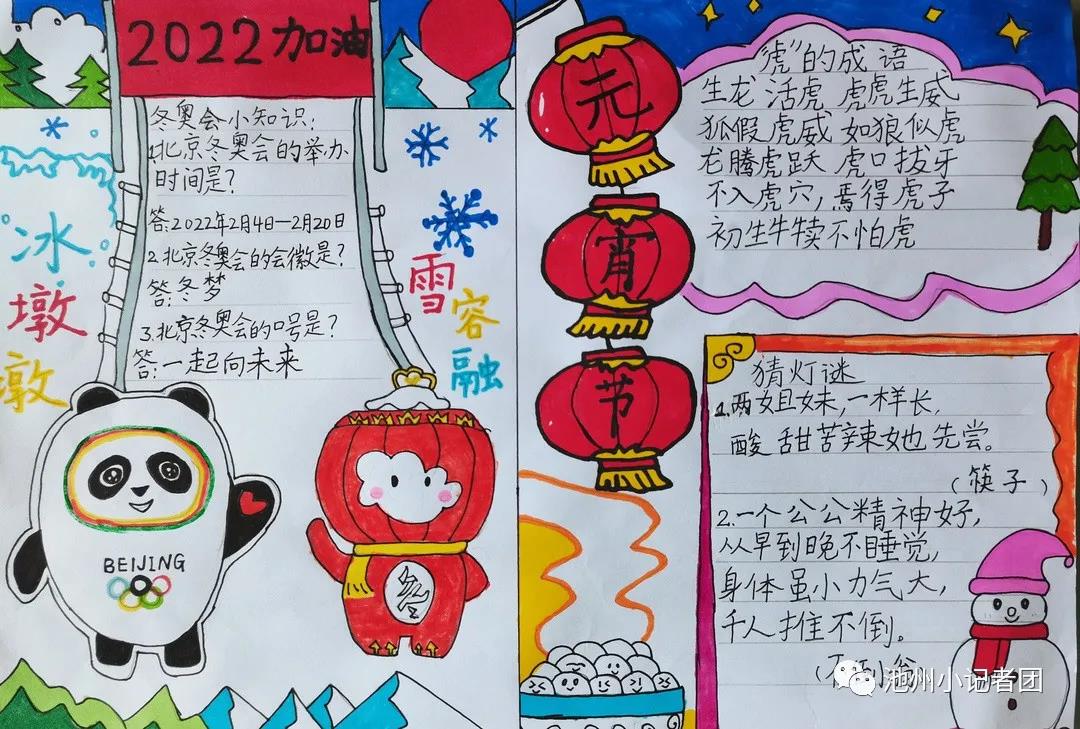 2022加油
冬奥会小知识:
1.北京冬奥会的举办
时间是?
答:2022年2月4日—2月20日
2.北京冬奥会的会徽是?
答:冬梦
3.北京冬奥会的口号是?
答:一起向未来
冰
墩
墩
雪
容
融
BEIJING
冬
元
宵
节
“虎”的成语
生龙活虎 虎虎生威
狐假虎威 如狼似虎
龙腾虎跃 虎口拔牙
不入虎穴,焉得虎子
初生牛犊不怕虎
猜灯谜
1.两姐妹,一样长,
酸甜苦辣她先尝。
(筷子)
2.一个公公精神好,
从早到晚不睡觉,
身体虽小力气大,
千人推不倒。
池州小记者团